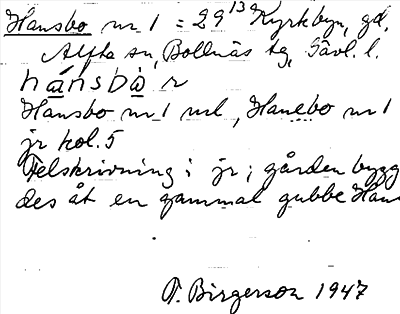 Hansbo nr 1 = 29¹³ᵃ Kyrkbyn, gd,
Alfta sn, Bollnäs tg, Gävl. l.
hánsbò r
Hansbo nr 1 nl, Hanebo nr 1
jr kol. 5
Felskrivning i jr; gården bygg
des åt en gammal gubbe Hans
T. Birgerson 1947